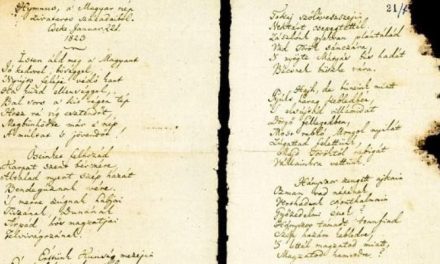 Hymnus, a' Magyar nép
zivataros századaiból.
Cseke Januar. 22d.
1823
Isten áldd meg a' Magyart
Jó kedvvel, bőséggel,
Nyújts feléje védő kart
Ha küzd ellenséggel;
Bal sors a' kit régen tép
Hozz rá víg esztendőt,
Megbünhödte már e' nép
A' múltat 's jövendőt!
Őseinket felhozád
Kárpát szent bérczére,
Általad nyert szép hazát
Bendegúznak vére.
'S merre zúgnak habjai
Tiszának, Dunának
Árpád hős magzatjai
Felvirágozának.
Értünk Kunság mezején
Tokaj szőlővesszejin
Nektárt csepegtettél.
Zászlónk gyakran plántálád
Vad török sánczára,
'S nyögte Mátyás bús hadát
Bécsnek büszke vára.
Hajh, de bűneink miatt
Gyúlt harag kebledben,
'S elsújtád villámidat
Dörgő fellegedben,
Most rabló Mongol nyilát
Zúgattad felettünk,
Majd töröktől rabigát
Vállainkra vettünk.
Hányszor zengett ajkain
Ozman vad népének
Vert hadunk csonthalmain
Győzedelmi ének!
Hányszor támadt tenfiad
Szép hazám kebledre,
'S lettél magzatod miatt
Magzatod hamvedre?